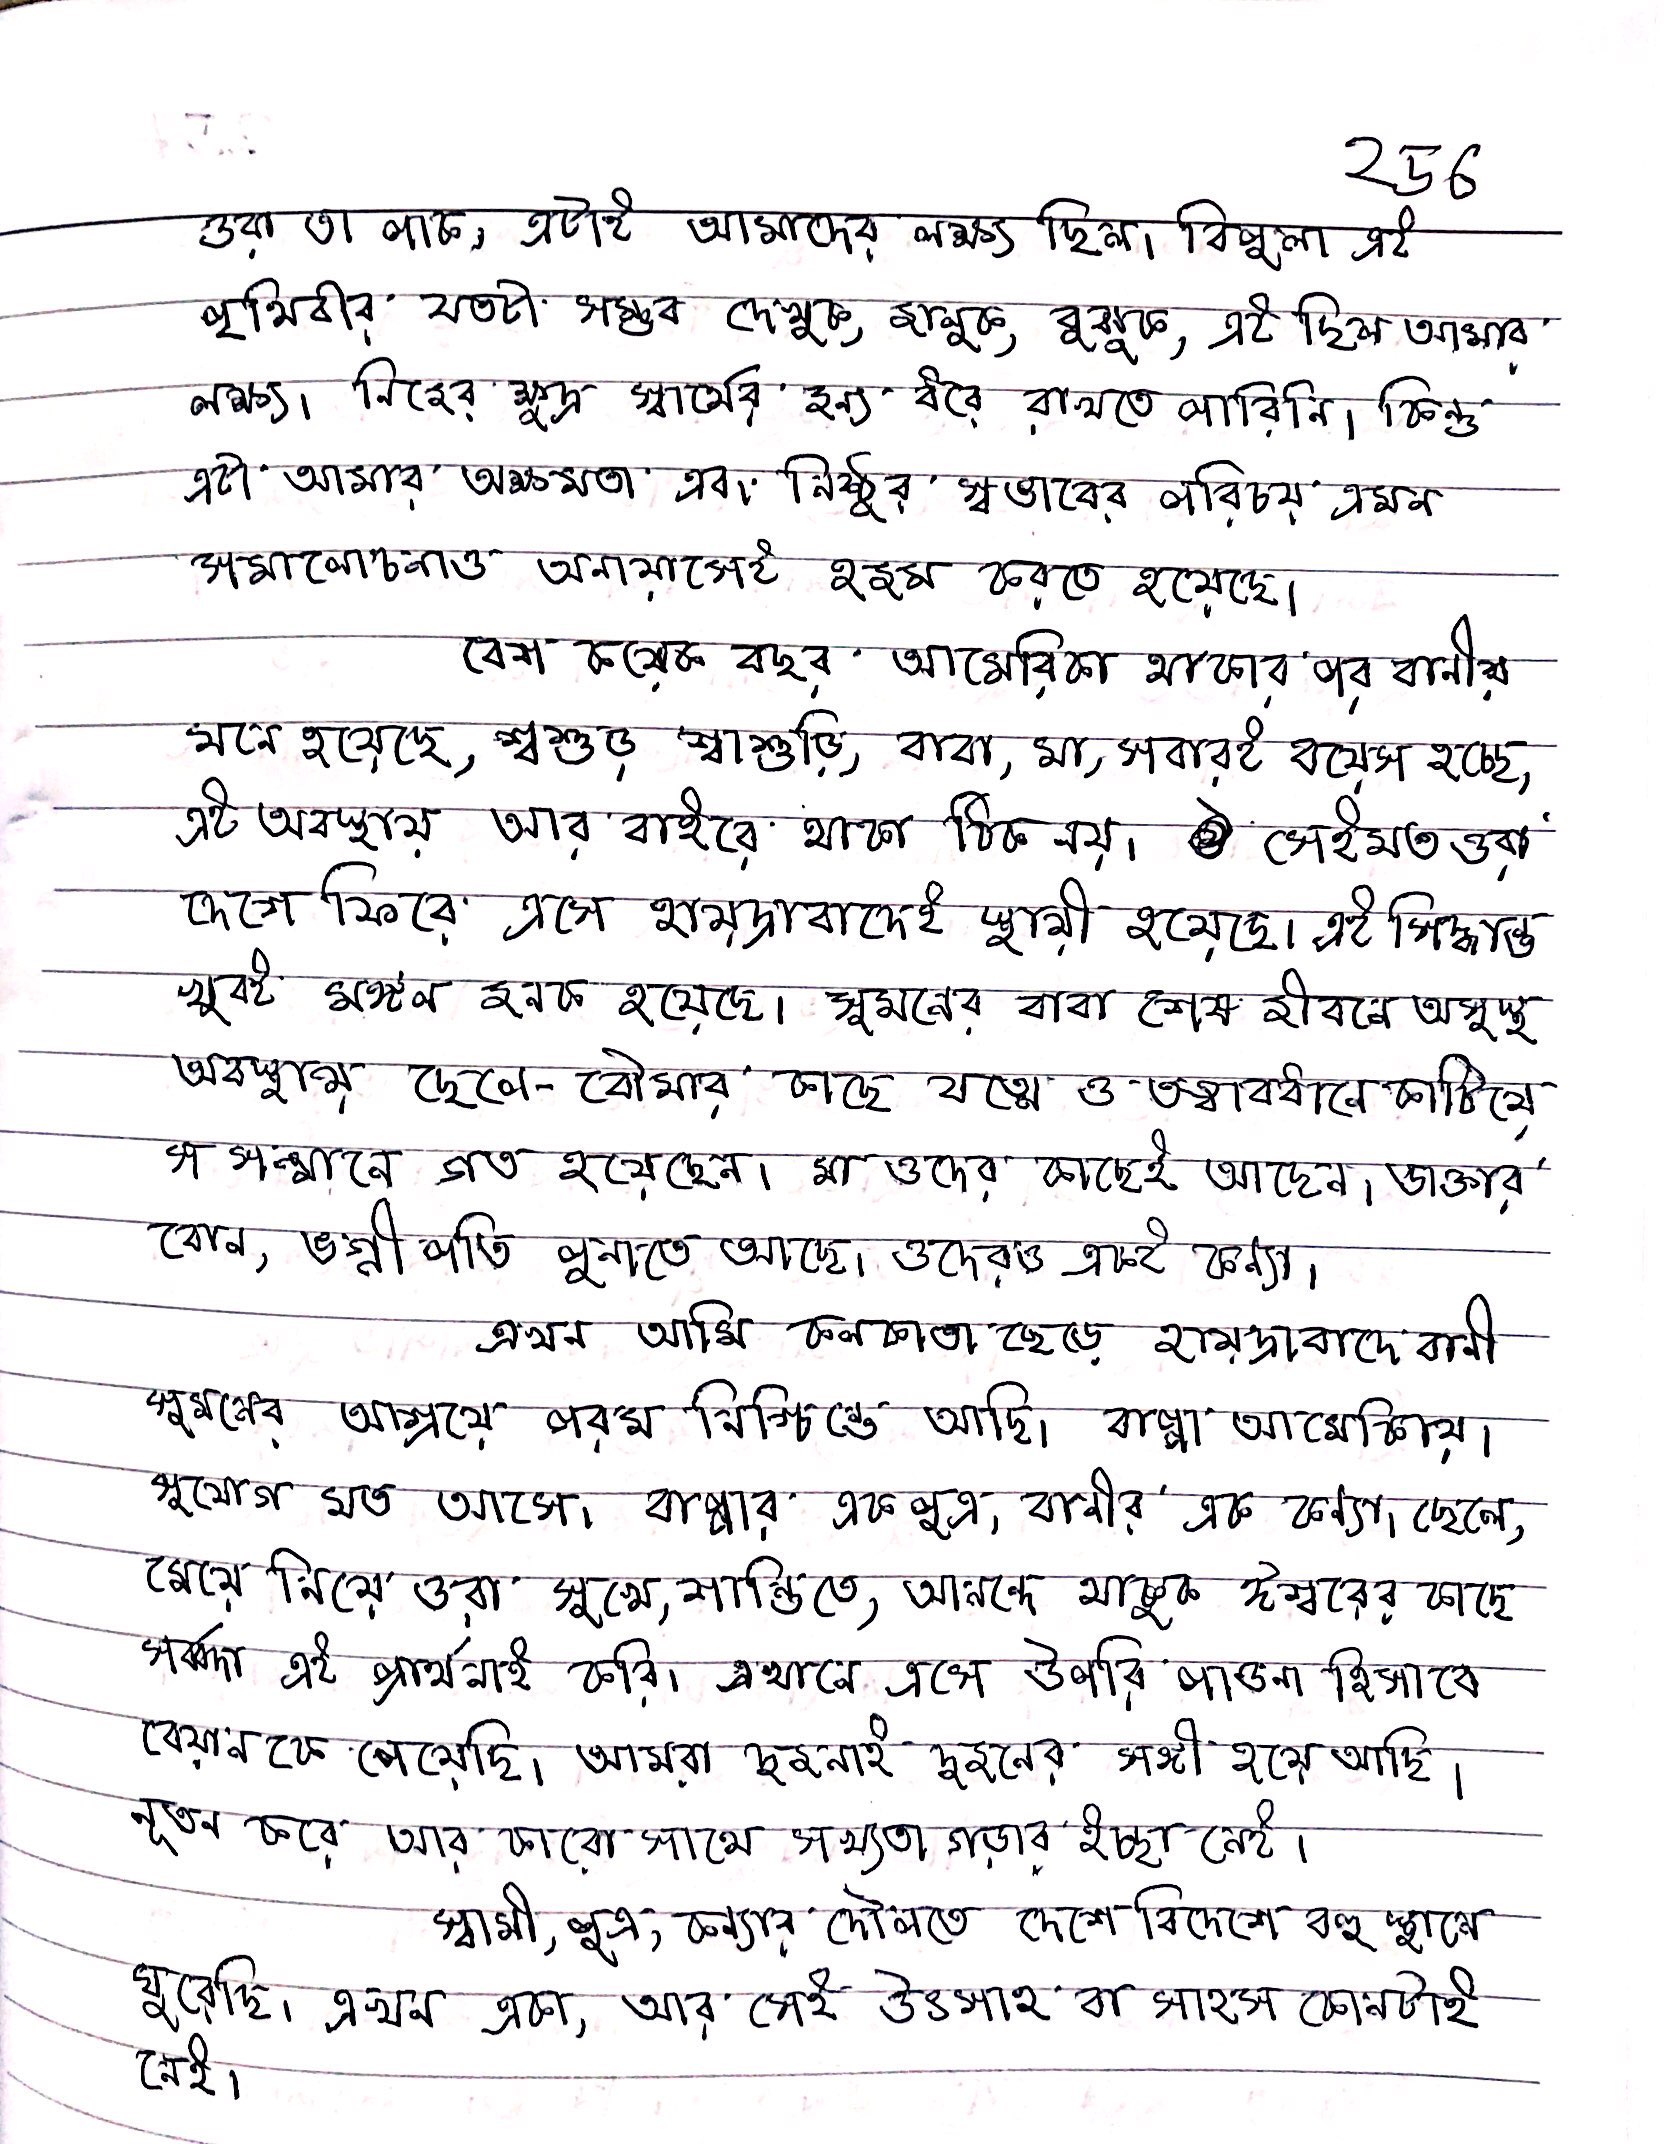 256
ওরা তা পাক, এটাই আমাদের লক্ষ্য ছিল। বিপুলা এই
পৃথিবীর যতটা সম্ভব দেখুক, জানুক, বুঝুক, এই ছিল আমার
লক্ষ্য। নিজের ক্ষুদ্র স্বার্থের জন্য ধরে রাখতে পারিনি। কিন্তু
এটা আমার অক্ষমতা এবং নিষ্ঠুর স্বভাবের পরিচয় এমন
সমালোচনাও অনায়াসেই হজম করতে হয়েছে।
বেশ কয়েক বছর আমেরিকা থাকার পর বানীর
মনে হয়েছে, শ্বশুড় শ্বাশুড়ি, বাবা, মা, সবারই বয়েস হচ্ছে,
এই অবস্থায় আর বাইরে থাকা ঠিক নয়। সেইমত ওরা
দেশে ফিরে এসে হায়দ্রাবাদেই স্থায়ী হয়েছে। এই সিদ্ধান্ত
খুবই মঙ্গল জনক হয়েছে। সুমনের বাবা শেষ জীবনে অসুস্থ
অবস্থায় ছেলে-বৌমার কাছে যত্নে ও তত্বাবধানে কাটিয়ে
স সন্মানে গত হয়েছেন। মা ওদের কাছেই আছেন। ডাক্তার
বোন, ভগ্নীপতি পুনাতে আছে। ওদেরও একই কন্যা।
এখন আমি কলকাতা ছেড়ে হায়দ্রাবাদে বানী
সুমনের আশ্রয়ে পরম নিশ্চিন্তে আছি। বাপ্পা আমেকিায়।
সুযোগ মত আসে। বাপ্পার এক পুত্র, বানীর এক কন্যা। ছেলে,
মেয়ে নিয়ে ওরা সুখে, শান্তিতে, আনন্দে থাকুক ঈশ্বরের কাছে
সর্ব্বদা এই প্রার্থনাই করি। এখানে এসে উপরি পাওনা হিসাবে
বেয়ান কে পেয়েছি। আমরা দুজনাই দুজনের সঙ্গী হয়ে আছি।
নূতন করে আর কারো সাথে সখ্যতা গড়ার ইচ্ছা নেই।
স্বামী, পুত্র, কন্যার দৌলতে দেশে বিদেশে বহু স্থানে
ঘুরেছি। এখন একা, আর সেই উৎসাহ বা সাহস কোনটাই
নেই।